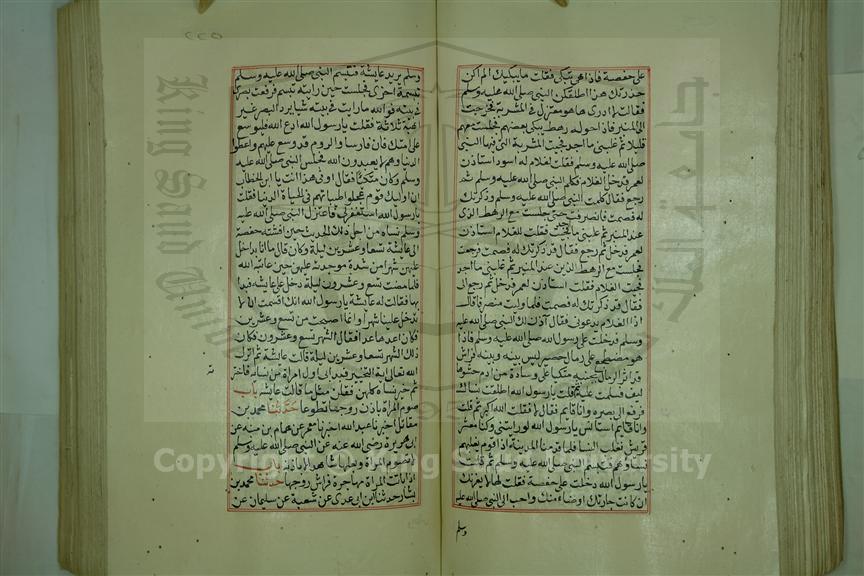 على حفصة فاذا هي تبكي فقلت ما يبكيك الم اكن
حذرتك هذا اطلقكن النبي صلى الله عليه وسلم
فقالت لا ادري ها هو معتزل في المشربة فخرجت فجيت
الى المنبر فاذا حوله رهط يبكي بعضهم فجلست معهم
قليلا ثم غلبني ما اجد فجيت المشربة التي فيها النبي
صلى الله عليه وسلم فقلت لغلام له اسود استاذن
لعمر فدخل الغلام فكلم النبي صلى الله عليه وسلم ثم
رجع فقال كلمت النبي صلى الله عليه وسلم وذكرتك
له فصمت فانصرفت حتى جلست مع الرهط الذي
عند المنبر ثم غلبني ما اجد فجيت فقلت للغلام استاذن
لعمر فدخل ثم رجع فقال قد ذكرتك له فصمت فرجعت
فجلست مع الرهط الذين عند المنبر ثم غلبني ما اجد
فجيت الغلام فقلت استاذن لعمر فدخل ثم رجع الي
فقال قد ذكرتك له فصمت فلما وليت منصرفا قال
اذا الغلام يدعوني فقال قد اذن لك النبي صلى الله عليه
وسلم فدخلت على رسول الله صلى الله عليه وسلم فاذا
هو مضطجع على رمال حصير ليس بينه وبينه فراش
قد اثر الرمال بجنبه متكئا على وسادة من ادم حشوها
ليف فسلمت عليه ثم قلت يا رسول الله اطلقت نساك
فرفع الي بصره وانا قايم فقال لا فقلت الله اكبر ثم قلت
وانا قايم استانس يا رسول الله لو رايتني وكنا معشر
قريش نغلب النسا فلما قدمنا المدينة اذا قوم تغلبهم
نساوهم فتبسم النبي صلى الله عليه وسلم ثم قلت
يا رسول الله دخلت على حفصة فقلت لها لا يغرنك
ان كانت جارتك اوضا منك واحب الى النبي صلى الله عليه
وسلم
وسلم يريد عايشة فتبسم النبي صلى الله عليه وسلم
تبسمة اخرى فجلست حين رايته تبسم فرفعت بصري
في بيته فوالله ما رايت في بيته شيا يرد البصر غير
اهبة ثلاثة فقلت يا رسول الله ادع الله فليوسع
على امتك فان فارسا والروم قد وسع عليهم واعطوا
الدنيا وهم لا يعبدون الله فجلس النبي صلى الله عليه
وسلم وكان متكئا فقال او في هذا انت يا ابن الخطاب
ان اوليك قوم عجلوا طيباتهم في الحياة الدنيا فقلت
يا رسول الله استغفر لي فاعتزل النبي صلى الله عليه
وسلم نساه من اجل ذلك الحديث حين افشته حفصة
الى عايشة تسعا وعشرين ليلة وكان قال ما انا بداخل
عليهن شهرا من شدة موجدته عليهن حين عاتبه الله
فلما مضت تسع وعشرون ليلة دخل على عايشة فبدا
بها فقالت له عايشة يا رسول الله انك اقسمت ان لا
تدخل علينا شهرا وانما اصبحت من تسع وعشرين
اعدها عدا فقال الشهر تسع وعشرون فكان
ذلك الشهر تسعا وعشرين ليلة قالت عايشة ثم انزل
الله تعالى اية التخيير فبدا بي اول امراة من نسايه فاخترته
ثم خير نساه كلهن فقلن مثل ما قالت عايشة باب
صوم المراة باذن زوجها تطوعا حدثنا محمد بن
مقاتل اخبرنا عبد الله اخبرنا معمر عن همام بن منبه عن
ابي هريرة رضي الله عنه عن النبي صلى الله عليه وسلم
لا تصوم المراة وبعلها شاهد الا باذنه باب
اذا باتت المراة مهاجرة فراش زوجها حدثنا محمد بن
بشار حدثنا ابن ابي عدي عن شعبة عن سليمان عن
King Saud University
جامعة الملك
1957
Copyright © King Saud University